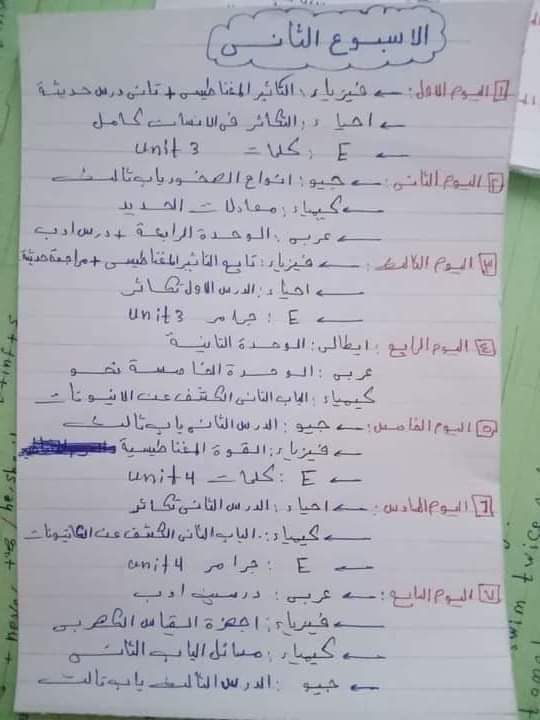 الاسبوع الثانى
١ اليوم الاول: ← فيزياء: التأثير المغناطيسى + تانى درس حديثة
← احياء: التكاثر فى الانسان كامل
← E : كلمات unit 3
٢ اليوم الثانى: ← جيو: انواع الصخور باب تالت
← كيمياء: معادلات الحديد
← عربى: الوحدة الرابعة + درس ادب
٣ اليوم التالت: ← فيزياء: تابع التأثير المغناطيسى + مراجعة حديثة
← احياء: الدرس الاول تكاثر
← E : جرامر unit 3
٤ اليوم الرابع: ايطالى: الوحدة الثانية
عربى: الوحدة الخامسة نحو
كيمياء: الباب الثانى الكشف عن الانيونات
٥ اليوم الخامس: ← جيو: الدرس الثانى باب تالت
← فيزياء: القوة المغناطيسية
← E : كلمات unit 4
٦ اليوم السادس: ← احياء: الدرس الثانى تكاثر
← كيمياء: الباب الثانى الكشف عن الكاتيونات
← E : جرامر unit 4
٧ اليوم السابع: ← عربى: درسين ادب
← فيزياء: اجهزة القياس الكهربى
← كيمياء: مسائل الباب الثانى
← جيو: الدرس الثالث باب تالت